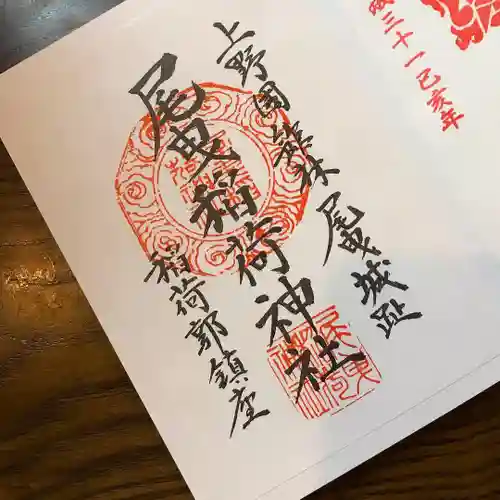 成三十一己亥年
上野國館林 尾曳城趾
尾曳稲荷神社
稲荷郭鎮座